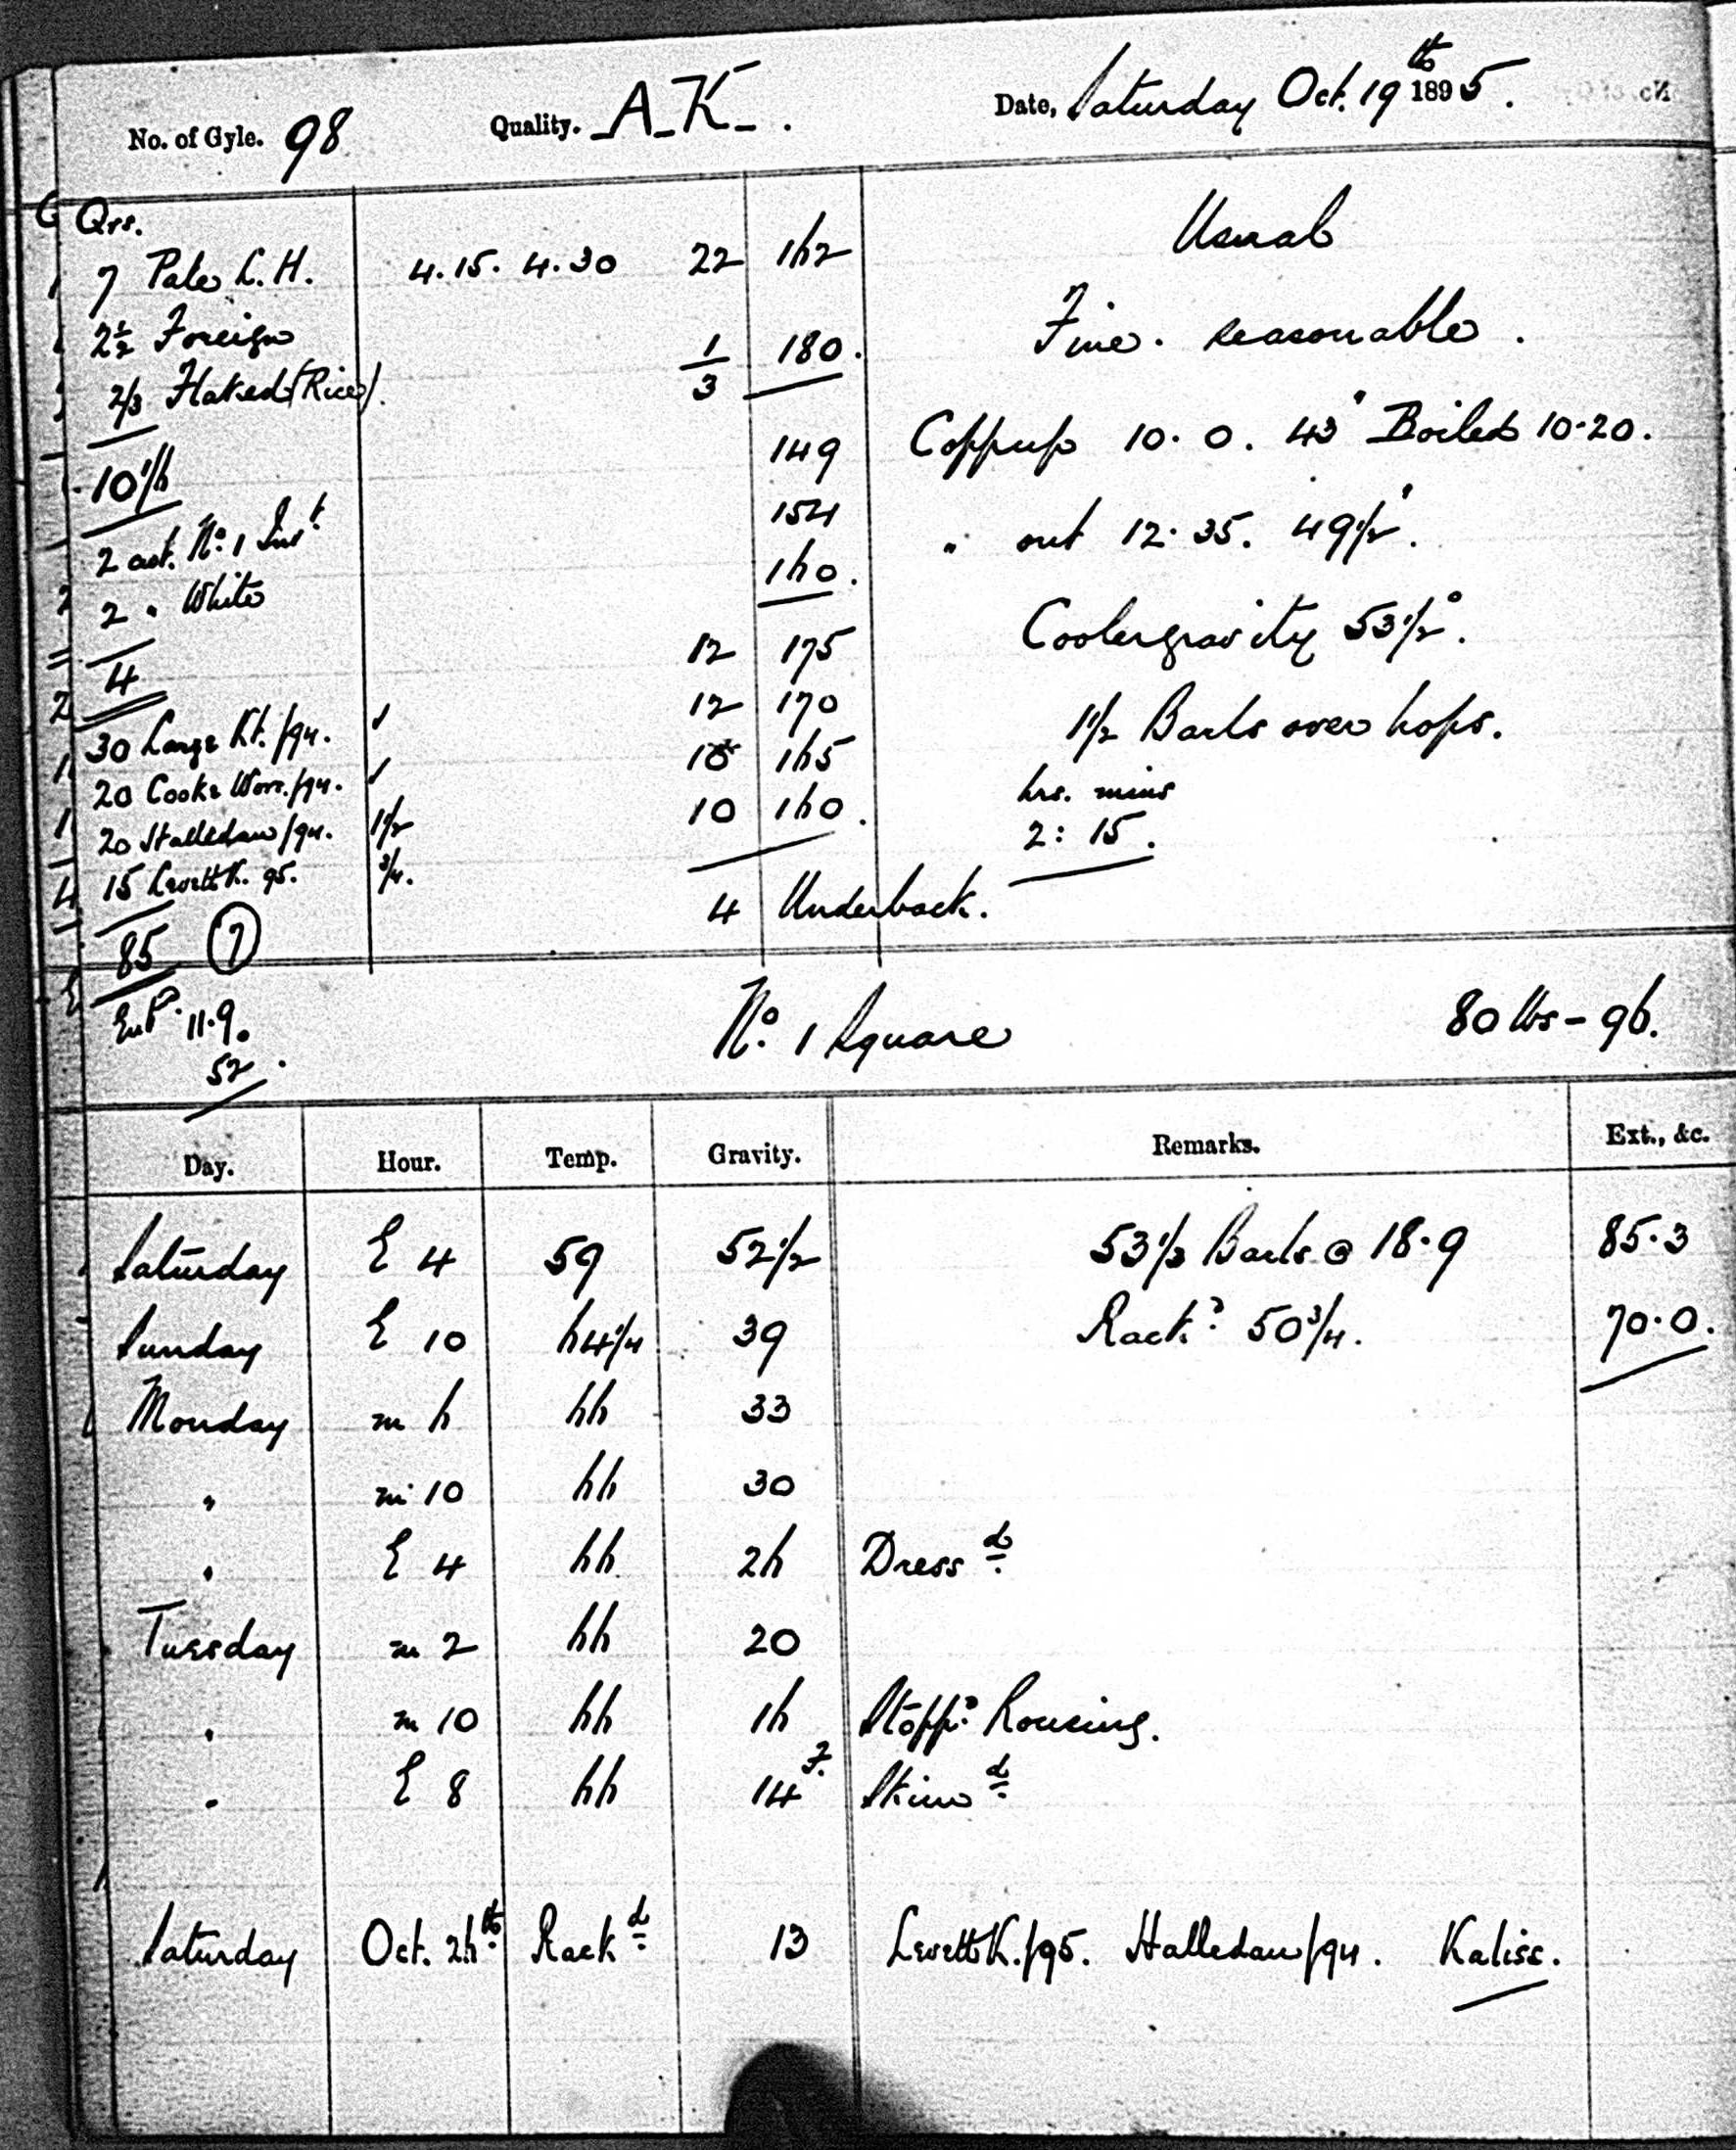 No. of Gyle. 98 Quality. A-K-. Date, Saturday Oct. 19th 1895.
Qrs.
7 Pale L.H. 4.15. 4.30 22 162 Usual
2½ Foreign 1/3 180. Fine. Reasonable.
2/3 Flaked (Rice).
10 1/6 149 Coppup 10.0. 43' Boiled 10.20.
2 cwt. No. 1 Invt 154 " out 12.35. 49½'.
2 " White 160. Coolergravity 53½°.
4 12 175
30 Large Kt. /94. ✓ 12 170 1½ Barls over hops.
20 Cooke Worc. /94. ✓ 10 165 hrs. mins
20 Halledau /94. 1½ 10 160. 2 : 15.
15 Levett K. 95. ¾. 4 Underback.
85 (7)
Exp. 11.9. No. 1 Square 80 lbs - 96.
52.
Day. Hour. Temp. Gravity. Remarks. Ext., &c.
Saturday E 4 59 52½ 53 1/3 Barls @ 18.9 85.3
Sunday E 10 64¼ 39 Rackd 50¾. 70.0.
Monday m 6 66 33
" m 10 66 30
" E 4 66 26 Dressd
Tuesday m 2 66 20
" m 10 66 16 Stoppd Rousing.
" E 8 66 14 F. Skimd
Saturday Oct. 26th Rackd 13 Levett K. /95. Halledau /94. Kalisc.